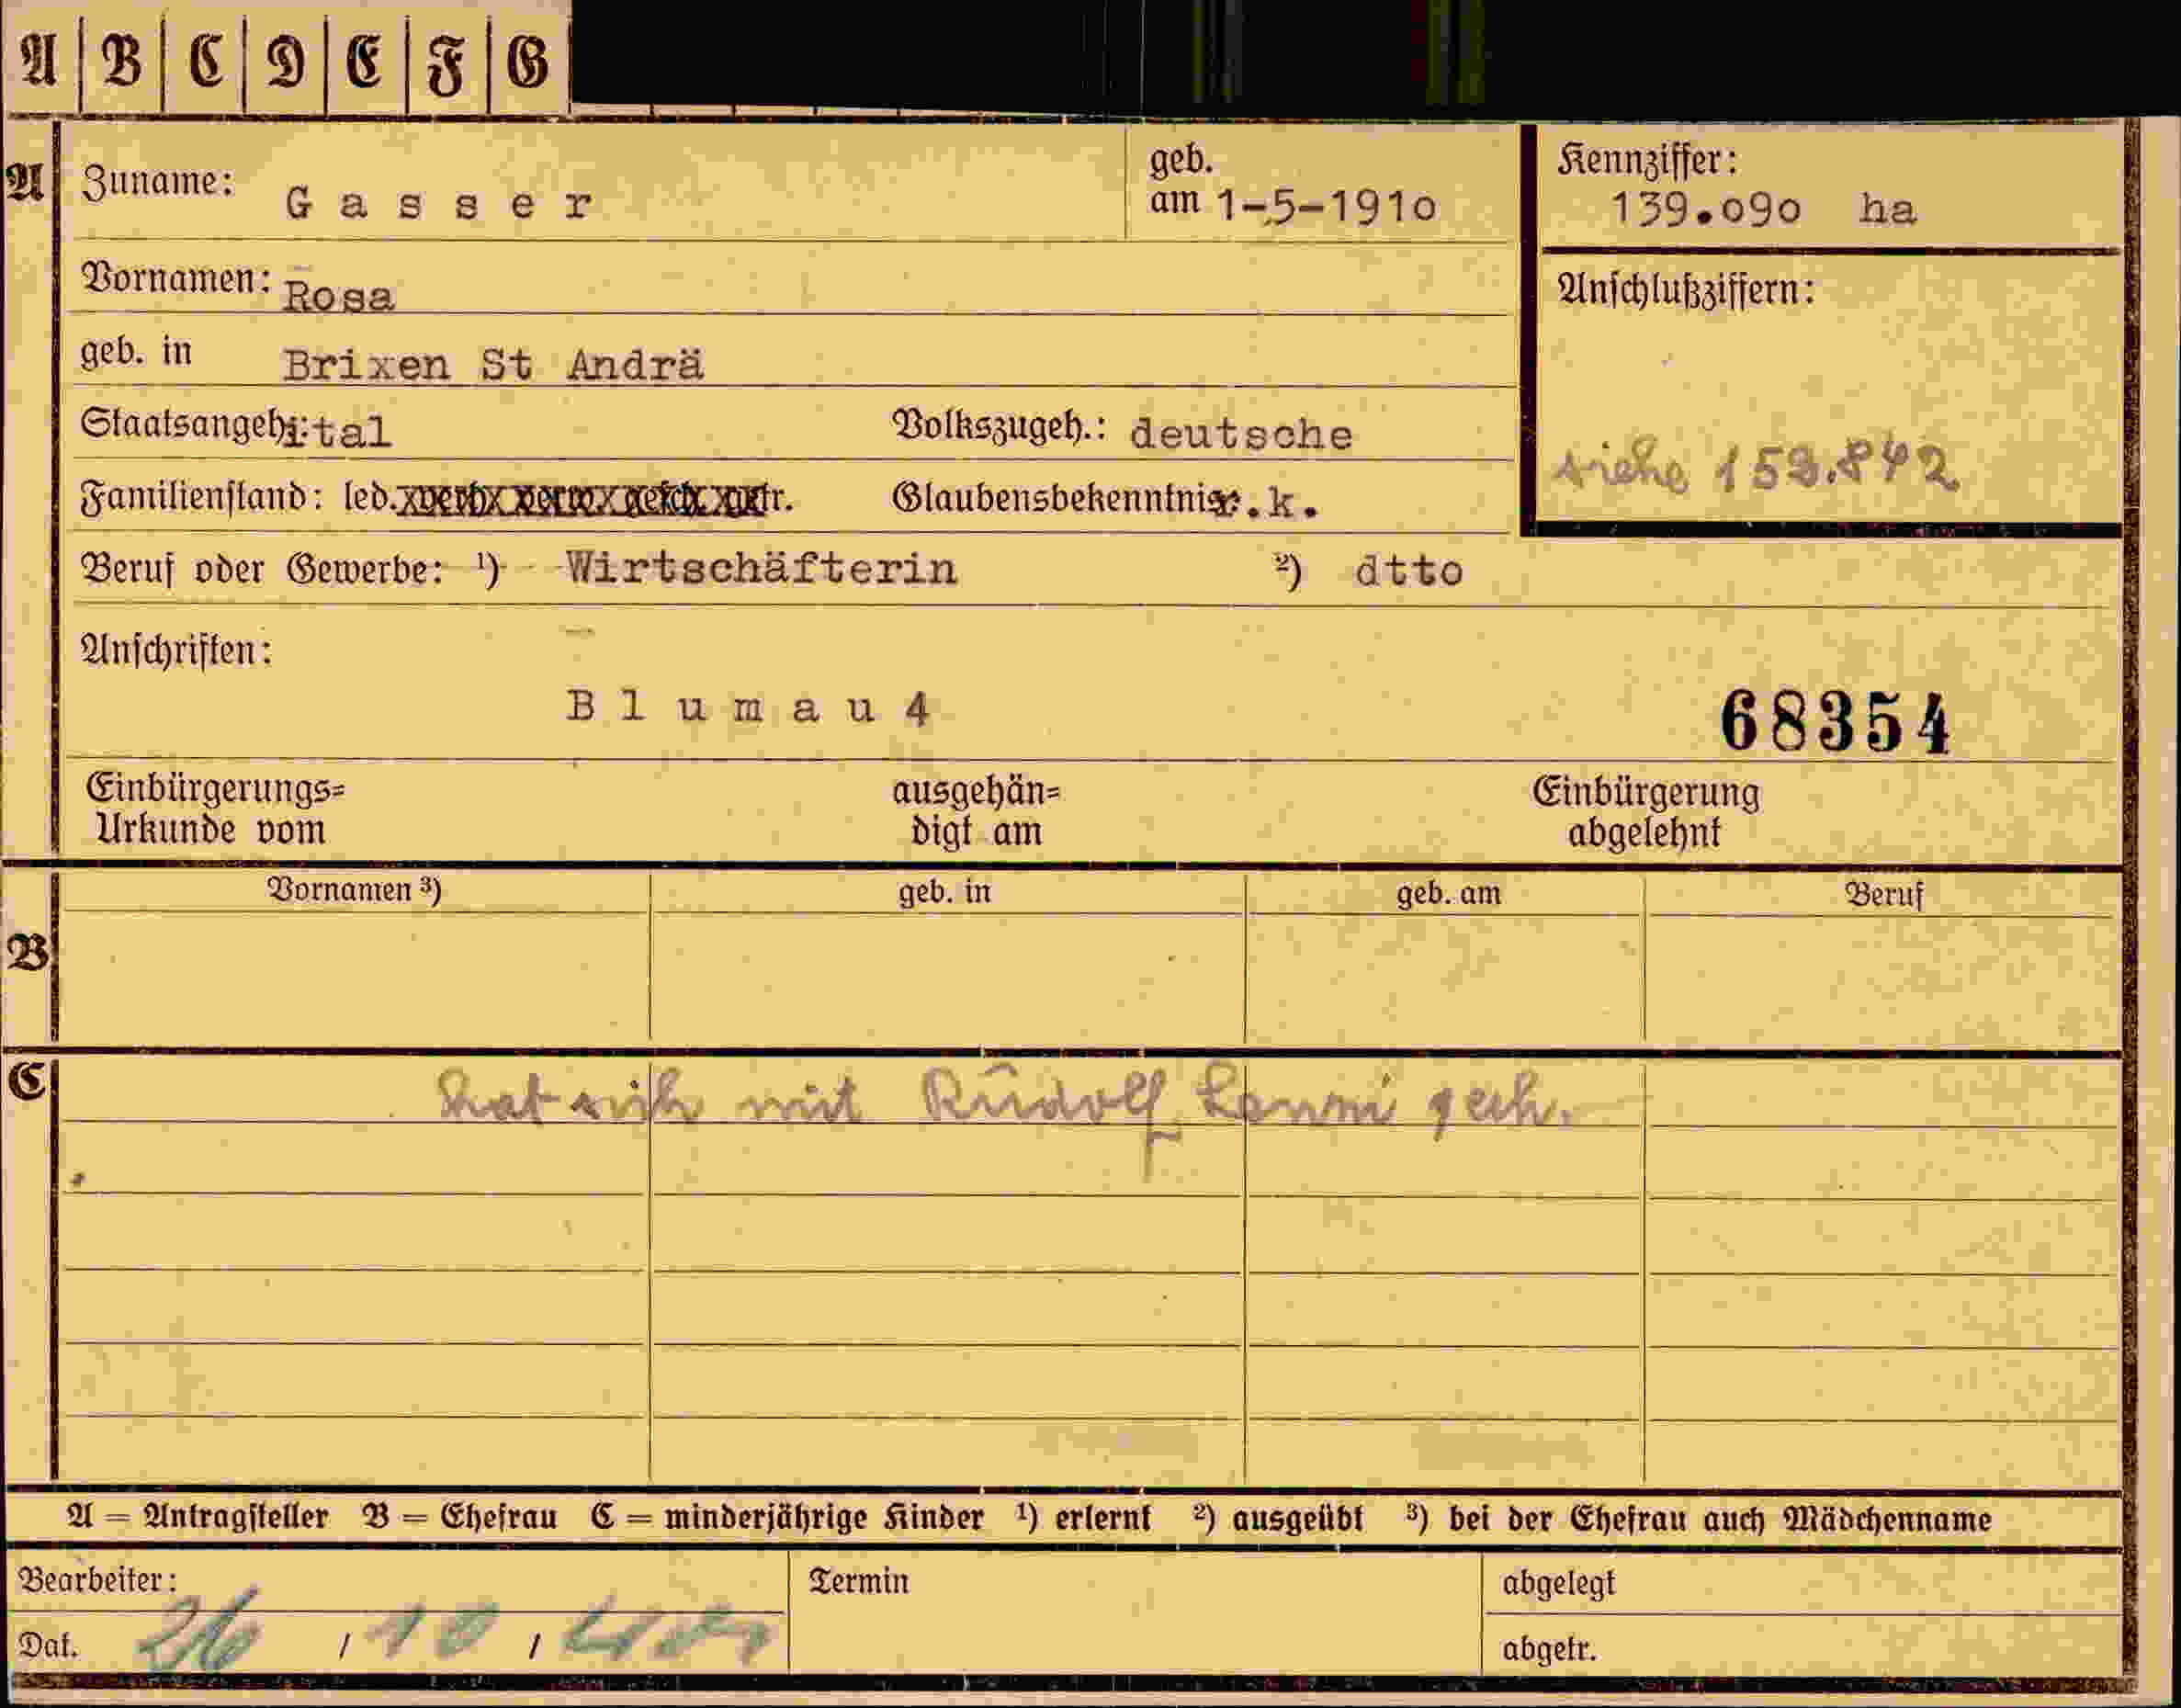 A B C D E F G
A Zuname: Gasser geb. am 1-5-1910 Kennziffer: 139.090 ha
Vornamen: Rosa Anschlußziffern:
geb. in Brixen St Andrä
Staatsangeh.: ital Volkszugeh.: deutsche siehe 153.842
Familienstand: led. getr. Glaubensbekenntnis: r.k.
Beruf oder Gewerbe: ¹) Wirtschäfterin ²) dtto
Anschriften:
Blumau 4 68354
Einbürgerungs= ausgehän= Einbürgerung
Urkunde vom digt am abgelehnt
Vornamen ³) geb. in geb. am Beruf
B
C hat sich mit Rudolf
A = Antragsteller B = Ehefrau C = minderjährige Kinder ¹) erlernt ²) ausgeübt ³) bei der Ehefrau auch Mädchenname
Bearbeiter: Termin abgelegt
Dat. 26 / 10 / abgetr.